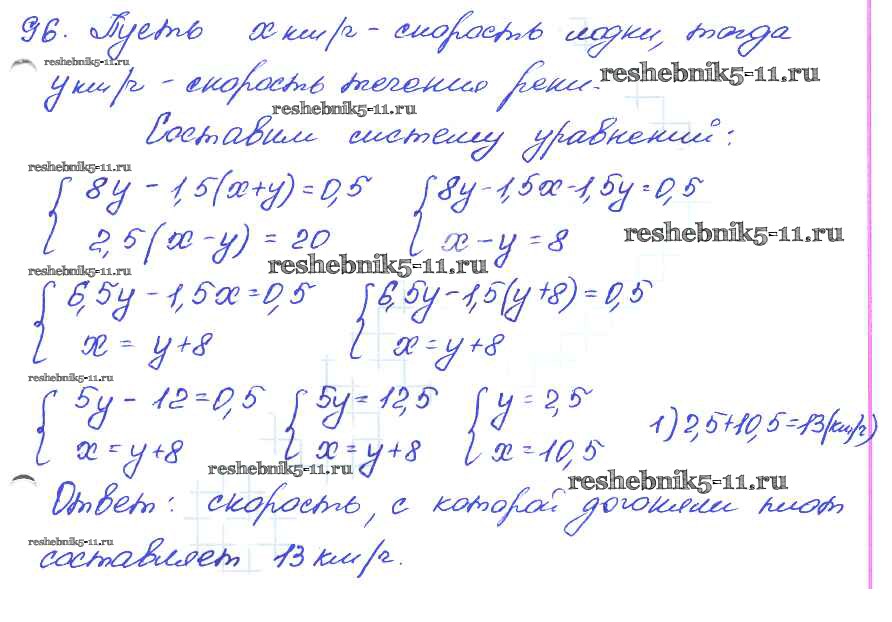 96. Пусть x км/ч – скорость лодки, тогда
reshebnik5-11.ru
y км/ч – скорость течения реки.
reshebnik5-11.ru
reshebnik5-11.ru
Составим систему уравнений:
reshebnik5-11.ru
{ 8y – 1,5(x+y) = 0,5 { 8y – 1,5x – 1,5y = 0,5
2,5(x – y) = 20 x – y = 8
reshebnik5-11.ru
reshebnik5-11.ru
reshebnik5-11.ru
{ 6,5y – 1,5x = 0,5 { 6,5y – 1,5(y+8) = 0,5
x = y+8 x = y+8
reshebnik5-11.ru
{ 5y – 12 = 0,5 { 5y = 12,5 { y = 2,5 1) 2,5+10,5=13(км/ч)
x = y+8 x = y+8 x = 10,5
reshebnik5-11.ru
reshebnik5-11.ru
Ответ: скорость, с которой догоняли плот
reshebnik5-11.ru
составляет 13 км/ч.